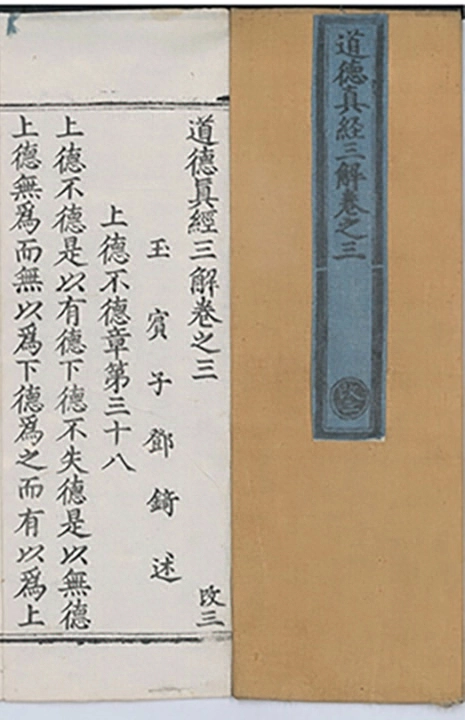 道德真経三解卷之三
改三
道德眞經三解卷之三
玉賓子鄧錡述
改三
上德不德章第三十八
上德不德是以有德下德不失德是以無德
上德無爲而無以爲下德爲之而有以爲上